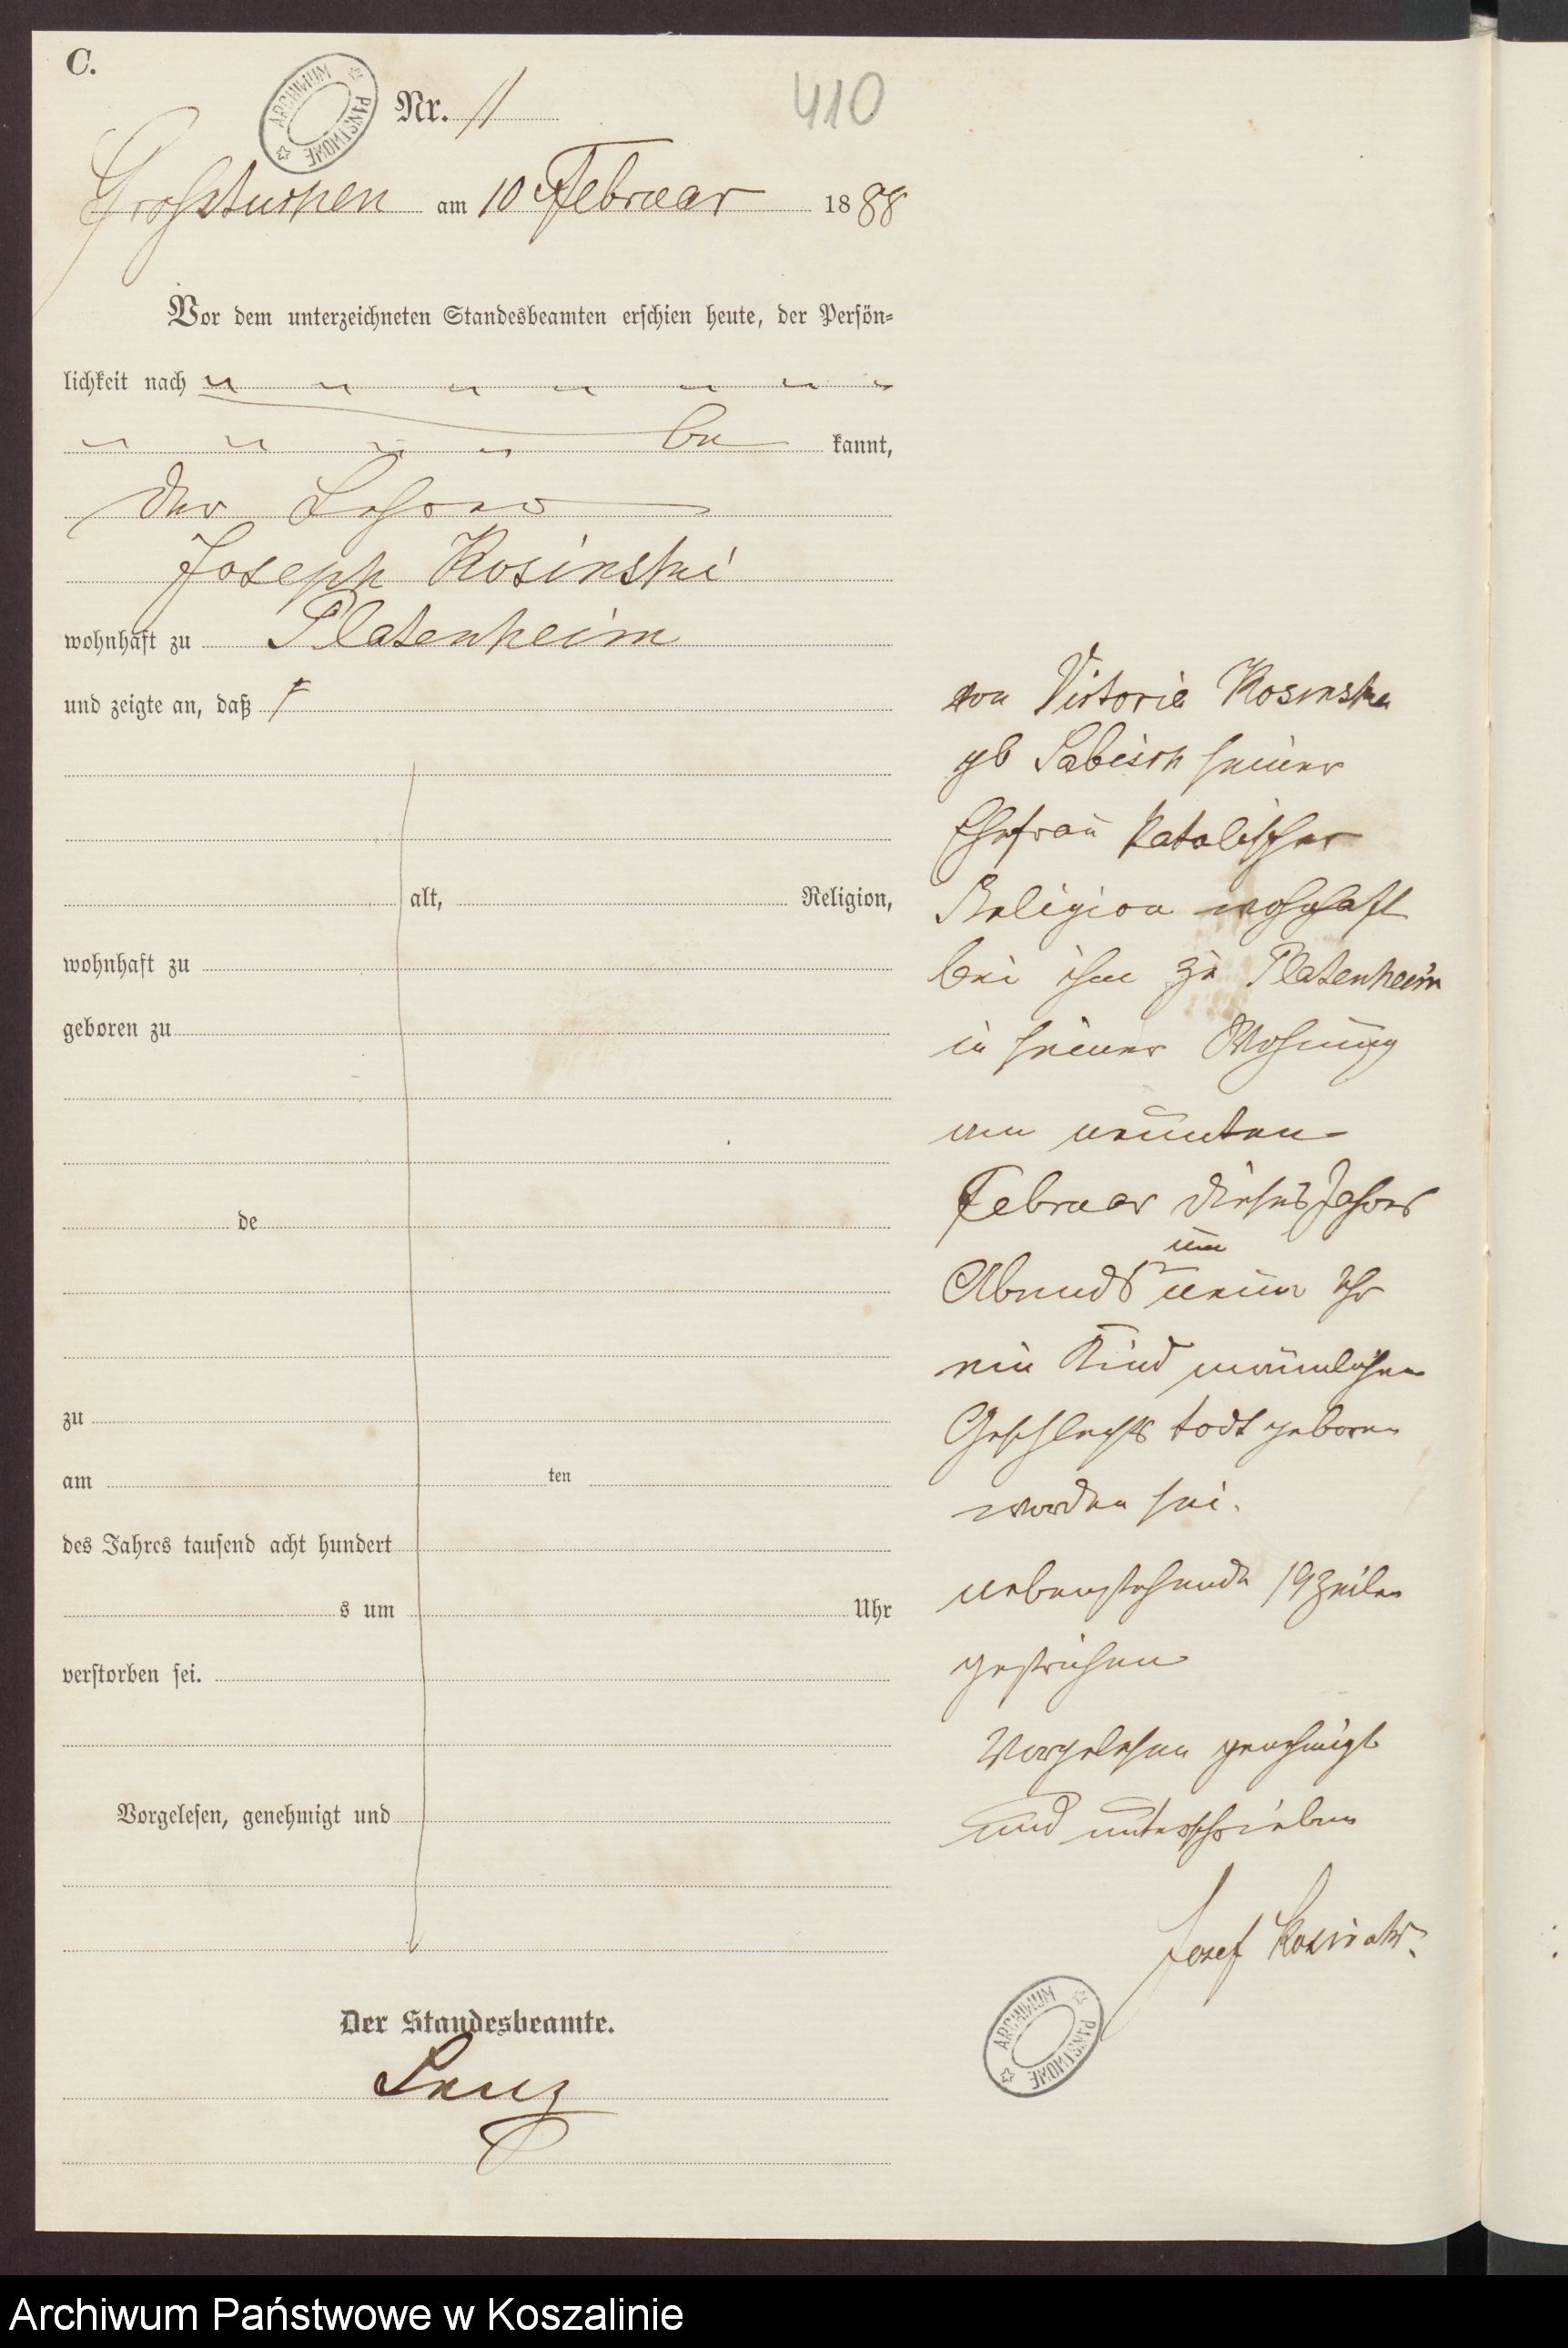 C.
ARCHIWUM PAŃSTWOWE
Nr. 11
410
Großtuchen am 10 Februar 1888
Vor dem unterzeichneten Standesbeamten erschien heute, der Persön-
lichkeit nach
be kannt,
der
Joseph Kosinski
wohnhaft zu Platenheim
und zeigte an, daß
alt, Religion,
wohnhaft zu
geboren zu
de
zu
am ten
des Jahres tausend acht hundert
s um Uhr
verstorben sei.
Vorgelesen, genehmigt und
Der Standesbeamte.
Lenz
von Victoria Kosinska
gb Sabisch seiner
Ehefrau katolischer
Religion wohnhaft
bei ihm zu Platenheim
in seiner Wohnung
am neunten
Februar dieses Jahres
um
Abends neun Uhr
ein Kind männlichen
Geschlechts todt geboren
worden sei.
nebenstehende 19 Zeilen
gestrichen
Vorgelesen genehmigt
und unterschrieben
Jozef
ARCHIWUM PAŃSTWOWE
Archiwum Państwowe w Koszalinie